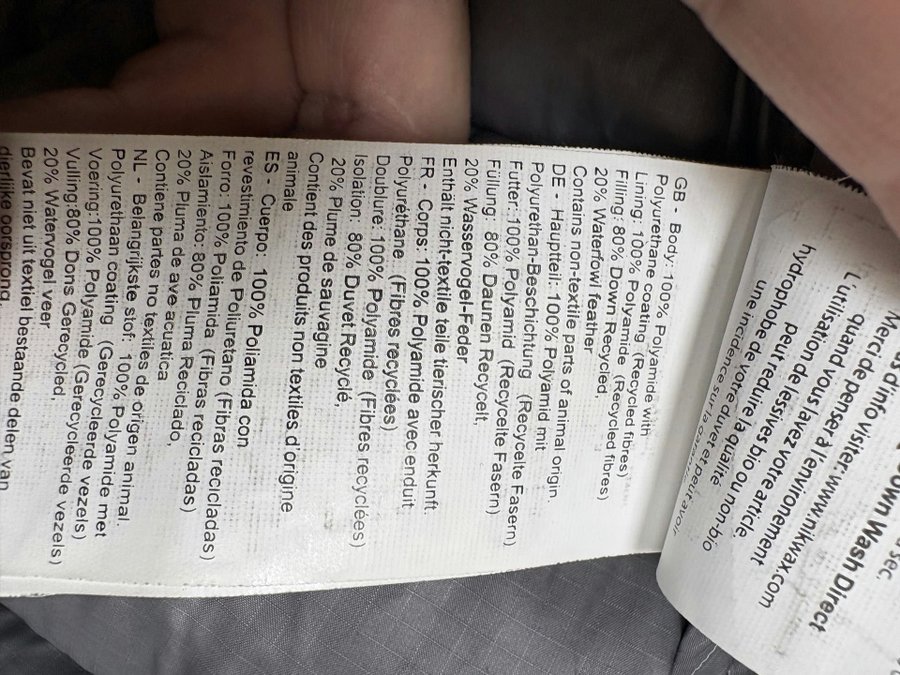 GB - Body: 100% Polyamide with
Polyurethane coating (Recycled fibres)
Lining: 100% Polyamide (Recycled fibres)
Filling: 80% Down Recycled,
20% Waterfowl feather
Contains non-textile parts of animal origin
DE - Hauptteil: 100% Polyamid mit
Polyurethan-Beschichtung (Recycelte Fasern)
Futter: 100% Polyamid (Recycelte Fasern)
Füllung: 80% Daunen Recycelt,
20% Wasservogel-Feder
Enthält nicht-textile teile tierischer herkunft
FR - Corps: 100% Polyamide avec enduit
Polyuréthane (Fibres recyclées)
Doublure: 100% Polyamide (Fibres recyclées)
Isolation: 80% Duvet Recyclé,
20% Plume de sauvagine
Contient des produits non textiles d'origine
animale
ES - Cuerpo: 100% Poliamida con
revestimiento de Poliuretano (Fibras recicladas)
Forro: 100% Poliamida (Fibras recicladas)
Aislamiento: 80% Pluma Reciclado,
20% Pluma de ave acuatica
Contiene partes no textiles de origen animal.
NL - Belangrijkste stof: 100% Polyamide met
Polyurethaan coating (Gerecycleerde vezels)
Voering:100% Polyamide (Gerecycleerde vezels)
Vulling:80% Dons Gerecycled,
20% Watervogel veer
Bevat niet uit textiel bestaande delen van
dierlijke oorsprong.
sec.
Down Wash Direct
d'info visiter: www.nikwax.com
Merci de penser à l'environement
quand vous lavez votre article,
L'utilisation de lessives bio ou non-bio
peut reduire la qualité
hydrophobe de votre duvet et peut avoir
une incidence sur